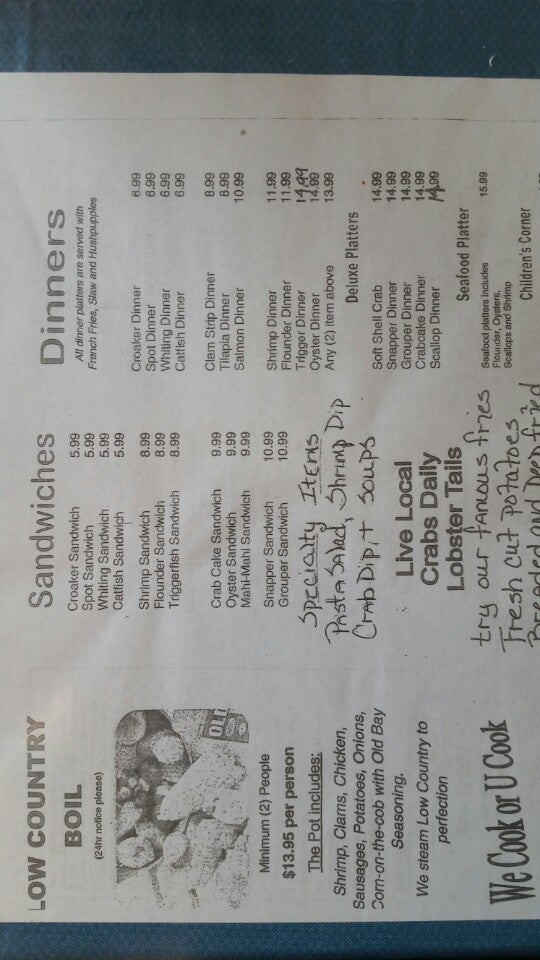 LOW COUNTRY
BOIL
(24hr notice please)
OLD
Minimum (2) People
$13.95 per person
The Pot Includes:
Shrimp, Clams, Chicken,
Sausages, Potatoes, Onions,
Corn-on-the-cob with Old Bay
Seasoning.
We steam Low Country to
perfection
We Cook or U Cook
Sandwiches
Croaker Sandwich 5.99
Spot Sandwich 5.99
Whiting Sandwich 5.99
Catfish Sandwich 5.99
Shrimp Sandwich 8.99
Flounder Sandwich 8.99
Triggerfish Sandwich 8.99
Crab Cake Sandwich 9.99
Oyster Sandwich 9.99
Mahi-Mahi Sandwich 9.99
Snapper Sandwich 10.99
Grouper Sandwich 10.99
Specialty Items
Pasta Salad, Shrimp Dip
Crab Dip, + Soups
Live Local
Crabs Daily
Lobster Tails
try our famous fries
Fresh cut potatoes
Breaded and Deep fried
Dinners
All dinner platters are served with
French Fries, Slaw and Hushpuppies
Croaker Dinner 6.99
Spot Dinner 6.99
Whiting Dinner 6.99
Catfish Dinner 6.99
Clam Strip Dinner 8.99
Tilapia Dinner 8.99
Salmon Dinner 10.99
Shrimp Dinner 11.99
Flounder Dinner 11.99
Trigger Dinner 14.99
Oyster Dinner 14.99
Any (2) item above 13.99
Deluxe Platters
Soft Shell Crab 14.99
Snapper Dinner 14.99
Grouper Dinner 14.99
Crabcake Dinner 14.99
Scallop Dinner 14.99
Seafood Platter
Seafood platters includes 15.99
Flounder, Oysters,
Scallops and Shrimp
Children's Corner